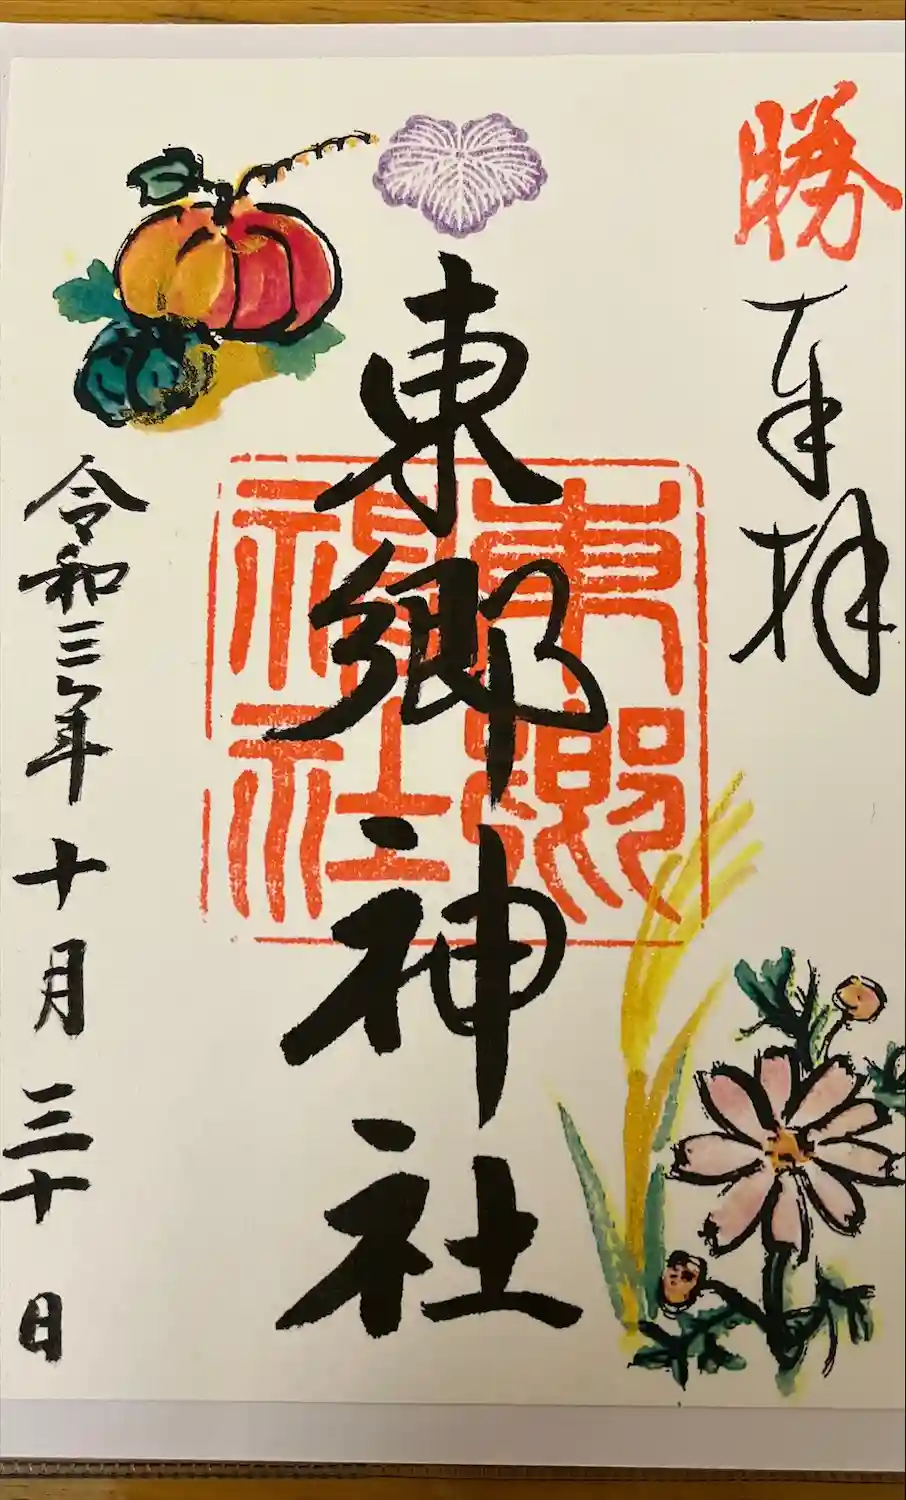 勝
奉拝
東郷神社
東郷
神社
令和三年十月三十日